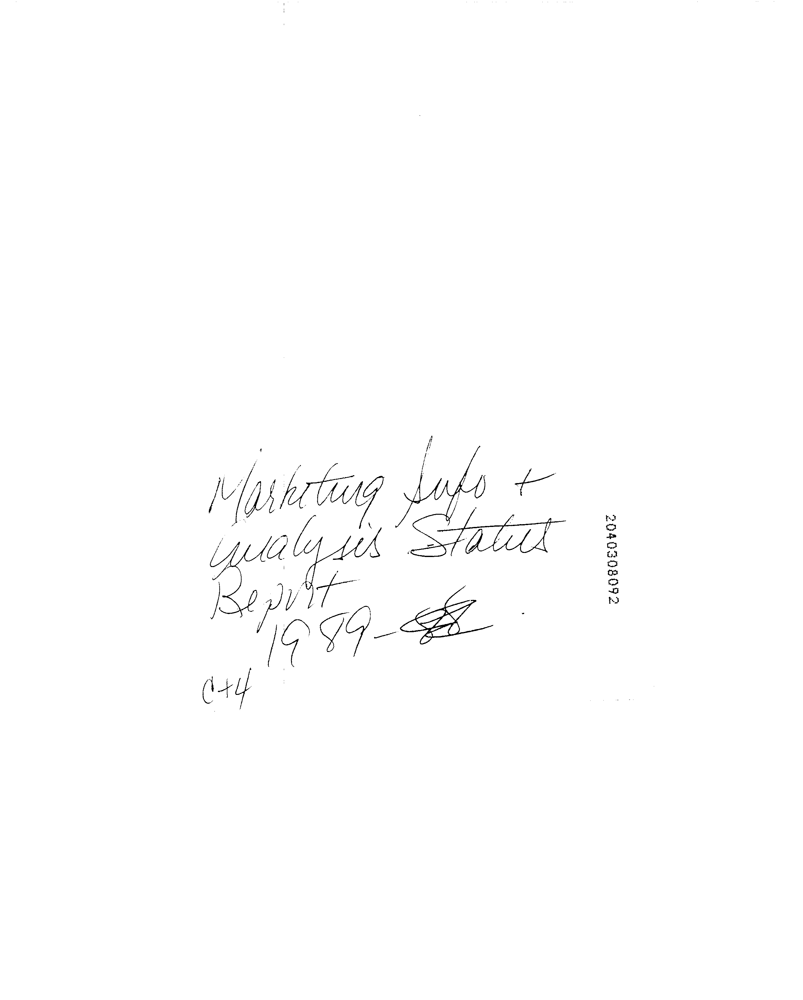 Marketing Info +
Analysis Status
Report
1989-
C+4
2040308092